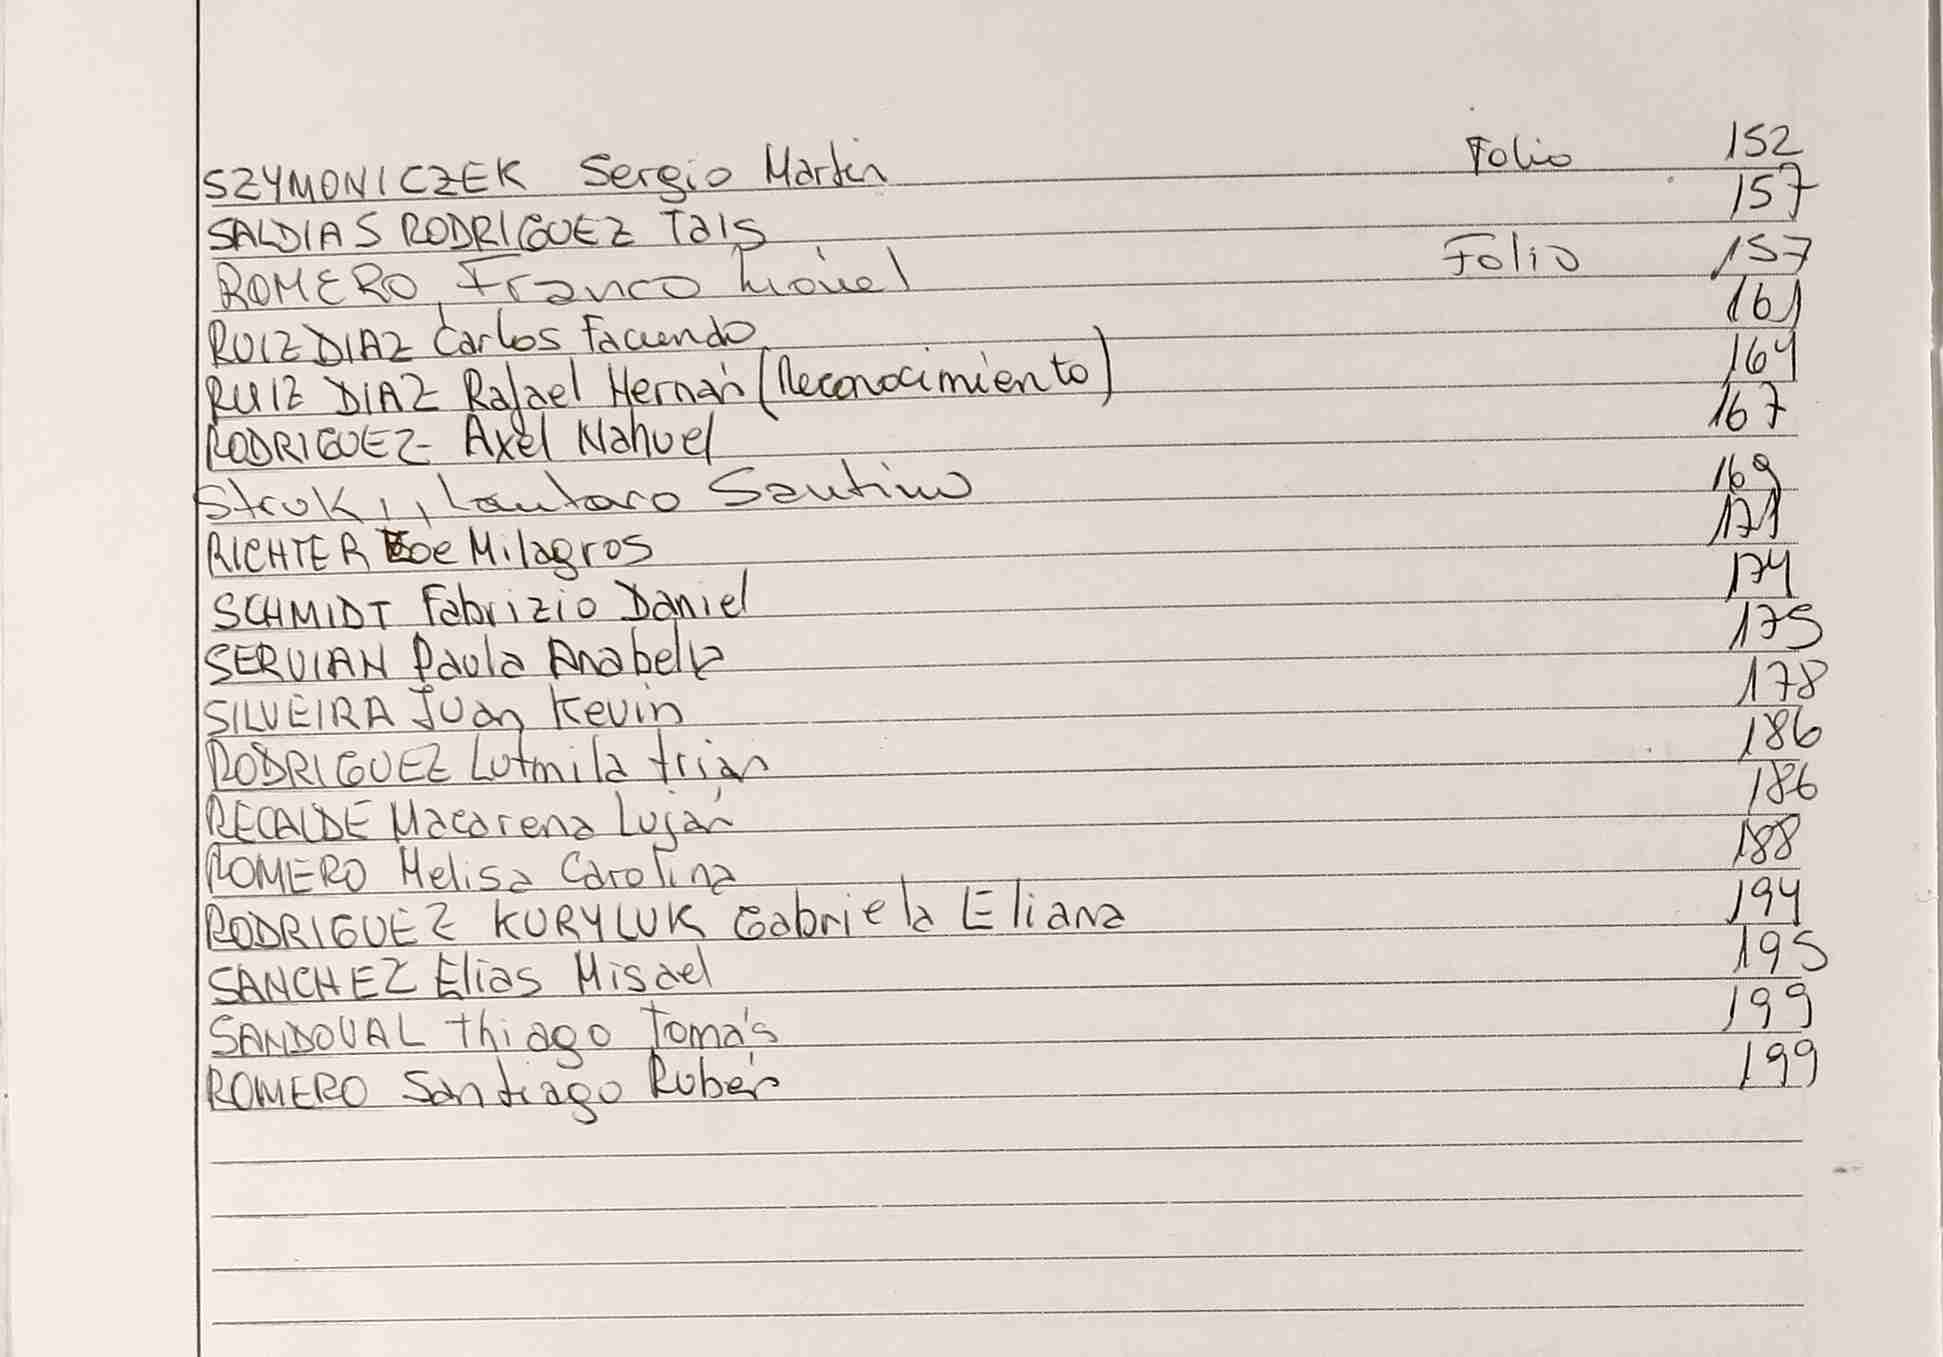 SZYMONICZEK Sergio Martin Folio 152
SALDIAS RODRIGUEZ Tais 157
ROMERO, Franco Lionel Folio 157
RUIZ DIAZ Carlos Facundo 161
RUIZ DIAZ Rafael Hernán (Reconocimiento) 164
RODRIGUEZ Axel Nahuel 167
Struk,, Lautaro Santino 169
RICHTER Zoe Milagros 171
SCHMIDT Fabrizio Daniel 174
SERVIAN Paula Anabella 175
SILVEIRA Juan Kevin 178
RODRIGUEZ Lutmila 186
RECALDE Macarena Luján 186
ROMERO Melisa Carolina 188
RODRIGUEZ KURYLUK Gabriela Eliana 194
SANCHEZ Elias Misael 195
SANDOVAL Thiago Tomás 199
ROMERO Santiago Rubén 199